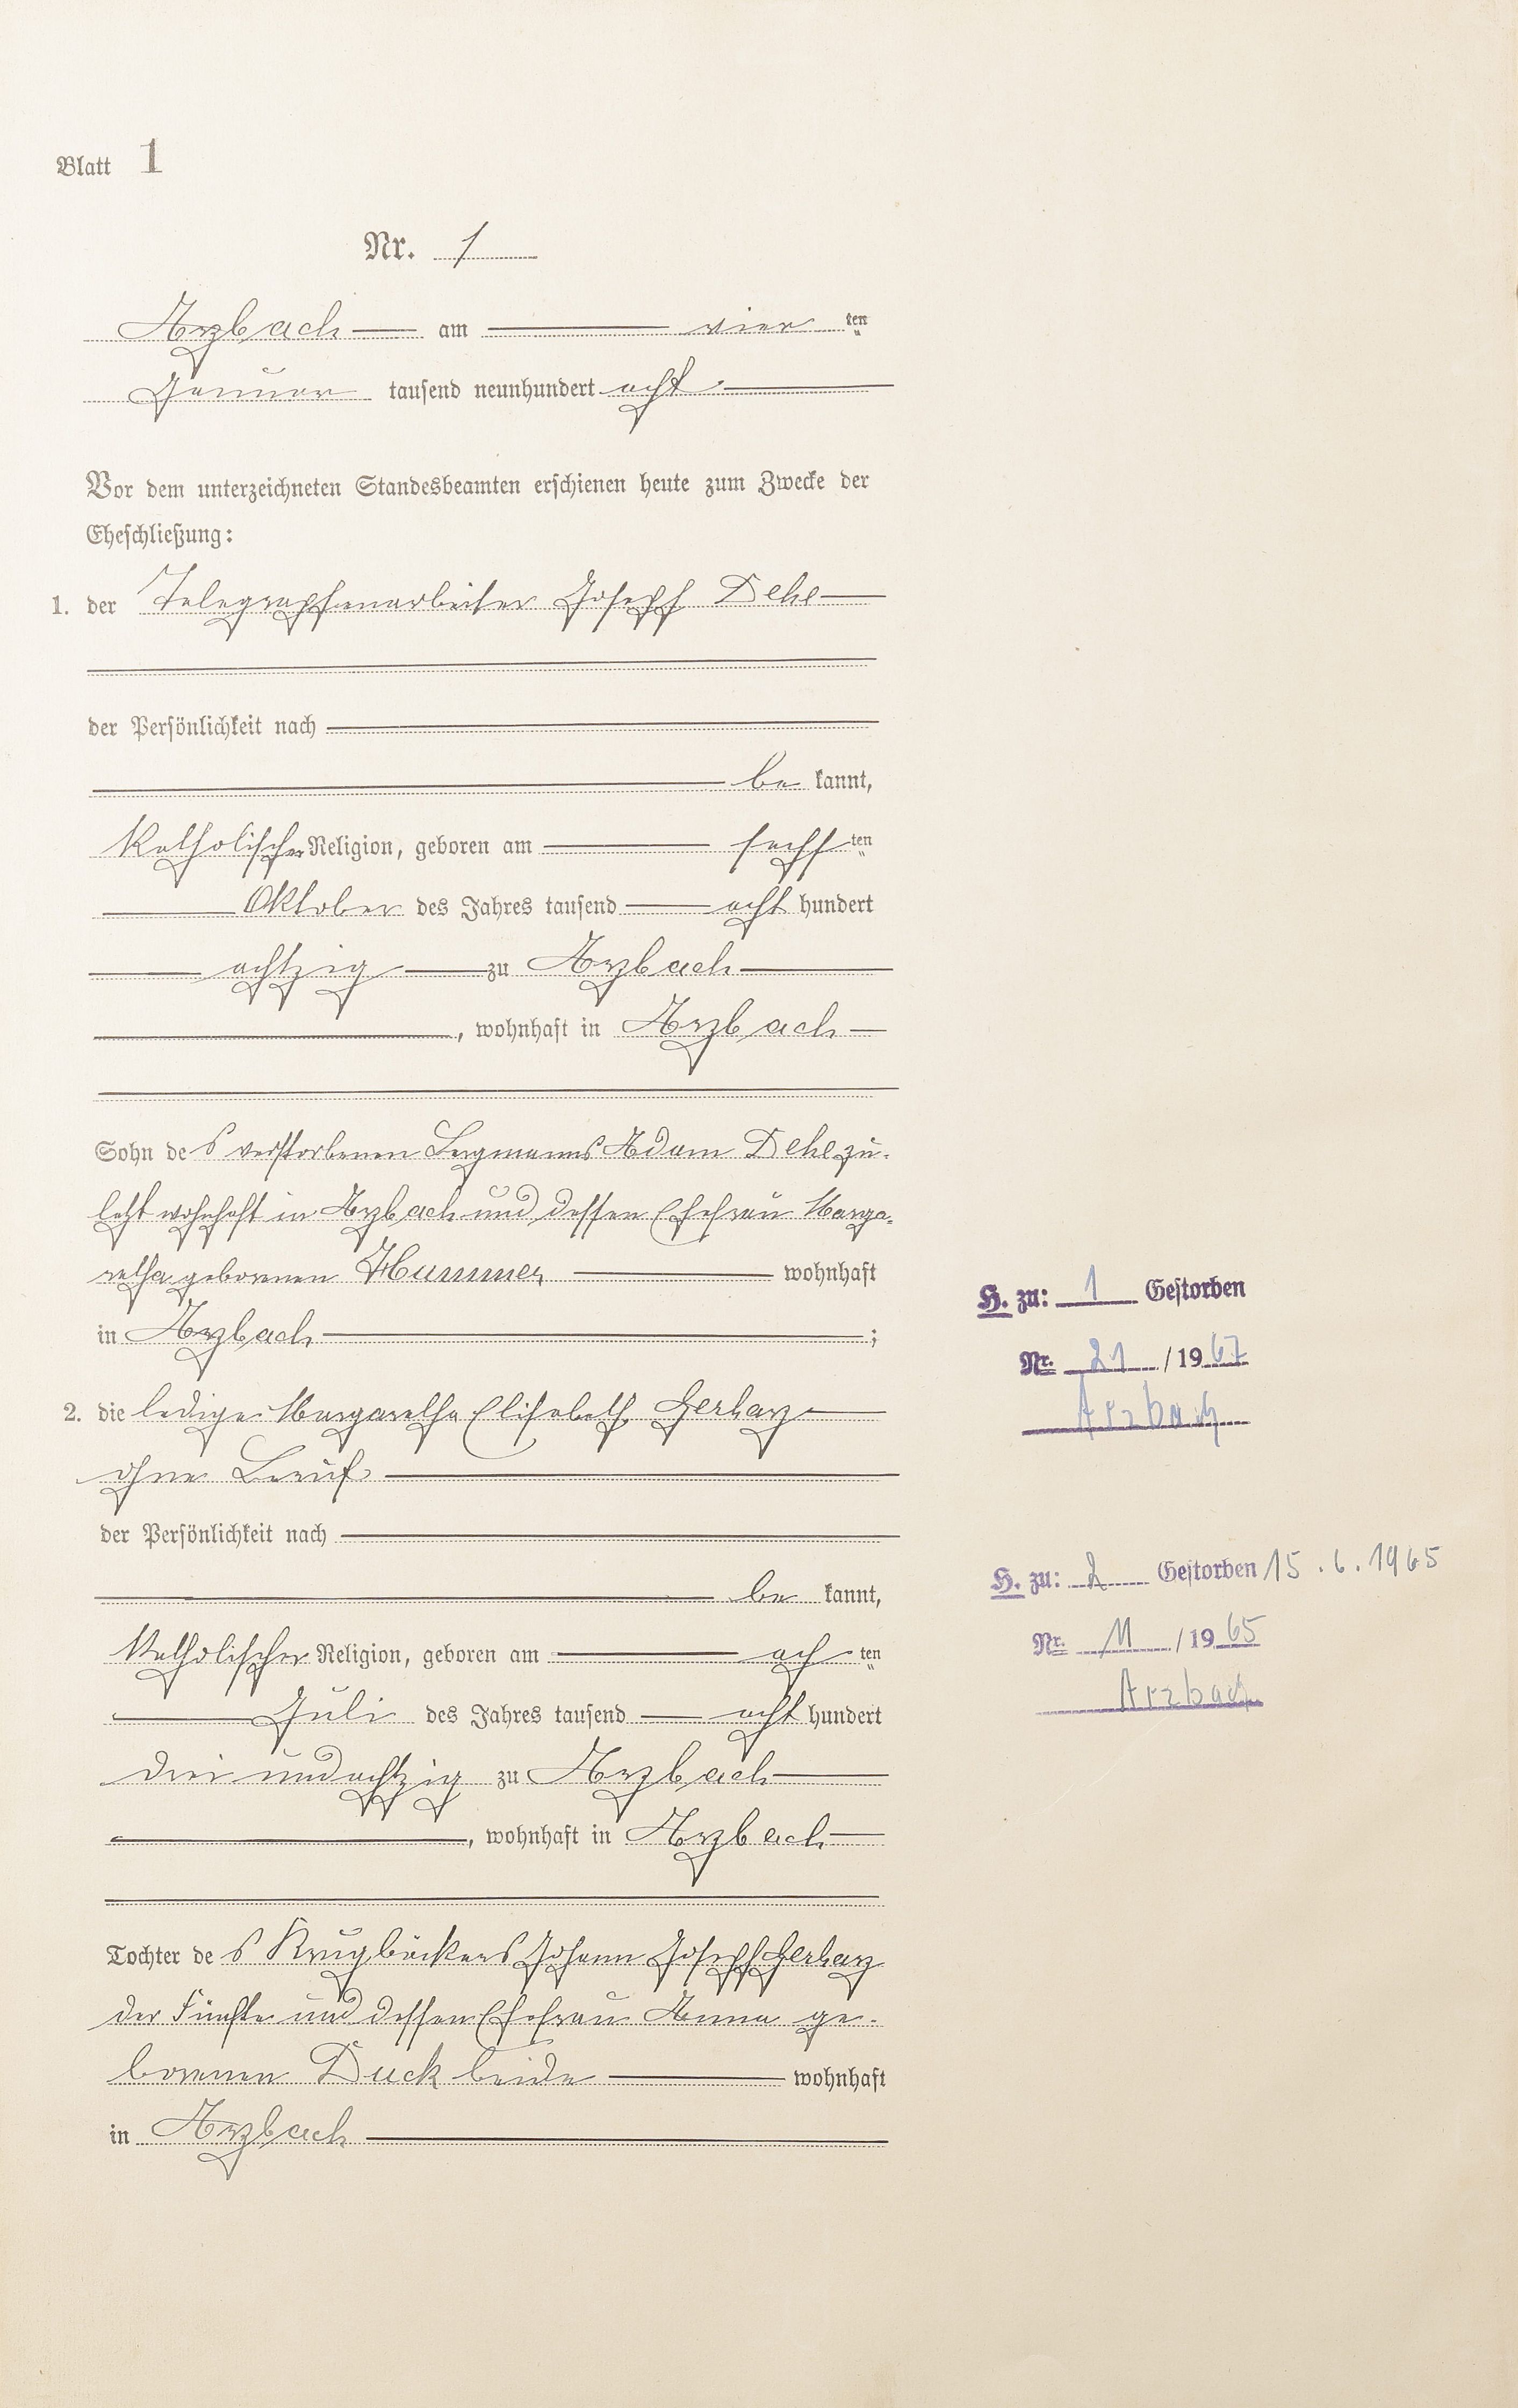 Blatt 1
Nr. 1
Arzbach am vier ten
Januar tausend neunhundert acht
Vor dem unterzeichneten Standesbeamten erschienen heute zum Zwecke der
Eheschließung:
1. der Telegraphenarbeiter Joseph Dehe
der Persönlichkeit nach
be kannt,
katholischer Religion, geboren am sechs ten
Oktober des Jahres tausend acht hundert
achtzig zu Arzbach
, wohnhaft in Arzbach
Sohn des verstorbenen Bergmanns Adam Dehe zu-
letzt wohnhaft in Arzbach und dessen Ehefrau Marga-
retha geborenen Hummer wohnhaft
in Arzbach ;
2. die ledige Margaretha Elisabeth Gerharz
ohne Beruf
der Persönlichkeit nach
be kannt,
katholischer Religion, geboren am ach ten
Juli des Jahres tausend acht hundert
drei und achtzig zu Arzbach
, wohnhaft in Arzbach
Tochter des Krugbäckers Johann Joseph Gerharz
der Fünfte und dessen Ehefrau Anna ge-
borenen Duck beide wohnhaft
in Arzbach
H. zu: 1 Gestorben
Nr. 21 / 1967
Arzbach
H. zu: 2 Gestorben 15.6.1965
Nr. 11 / 1965
Arzbach